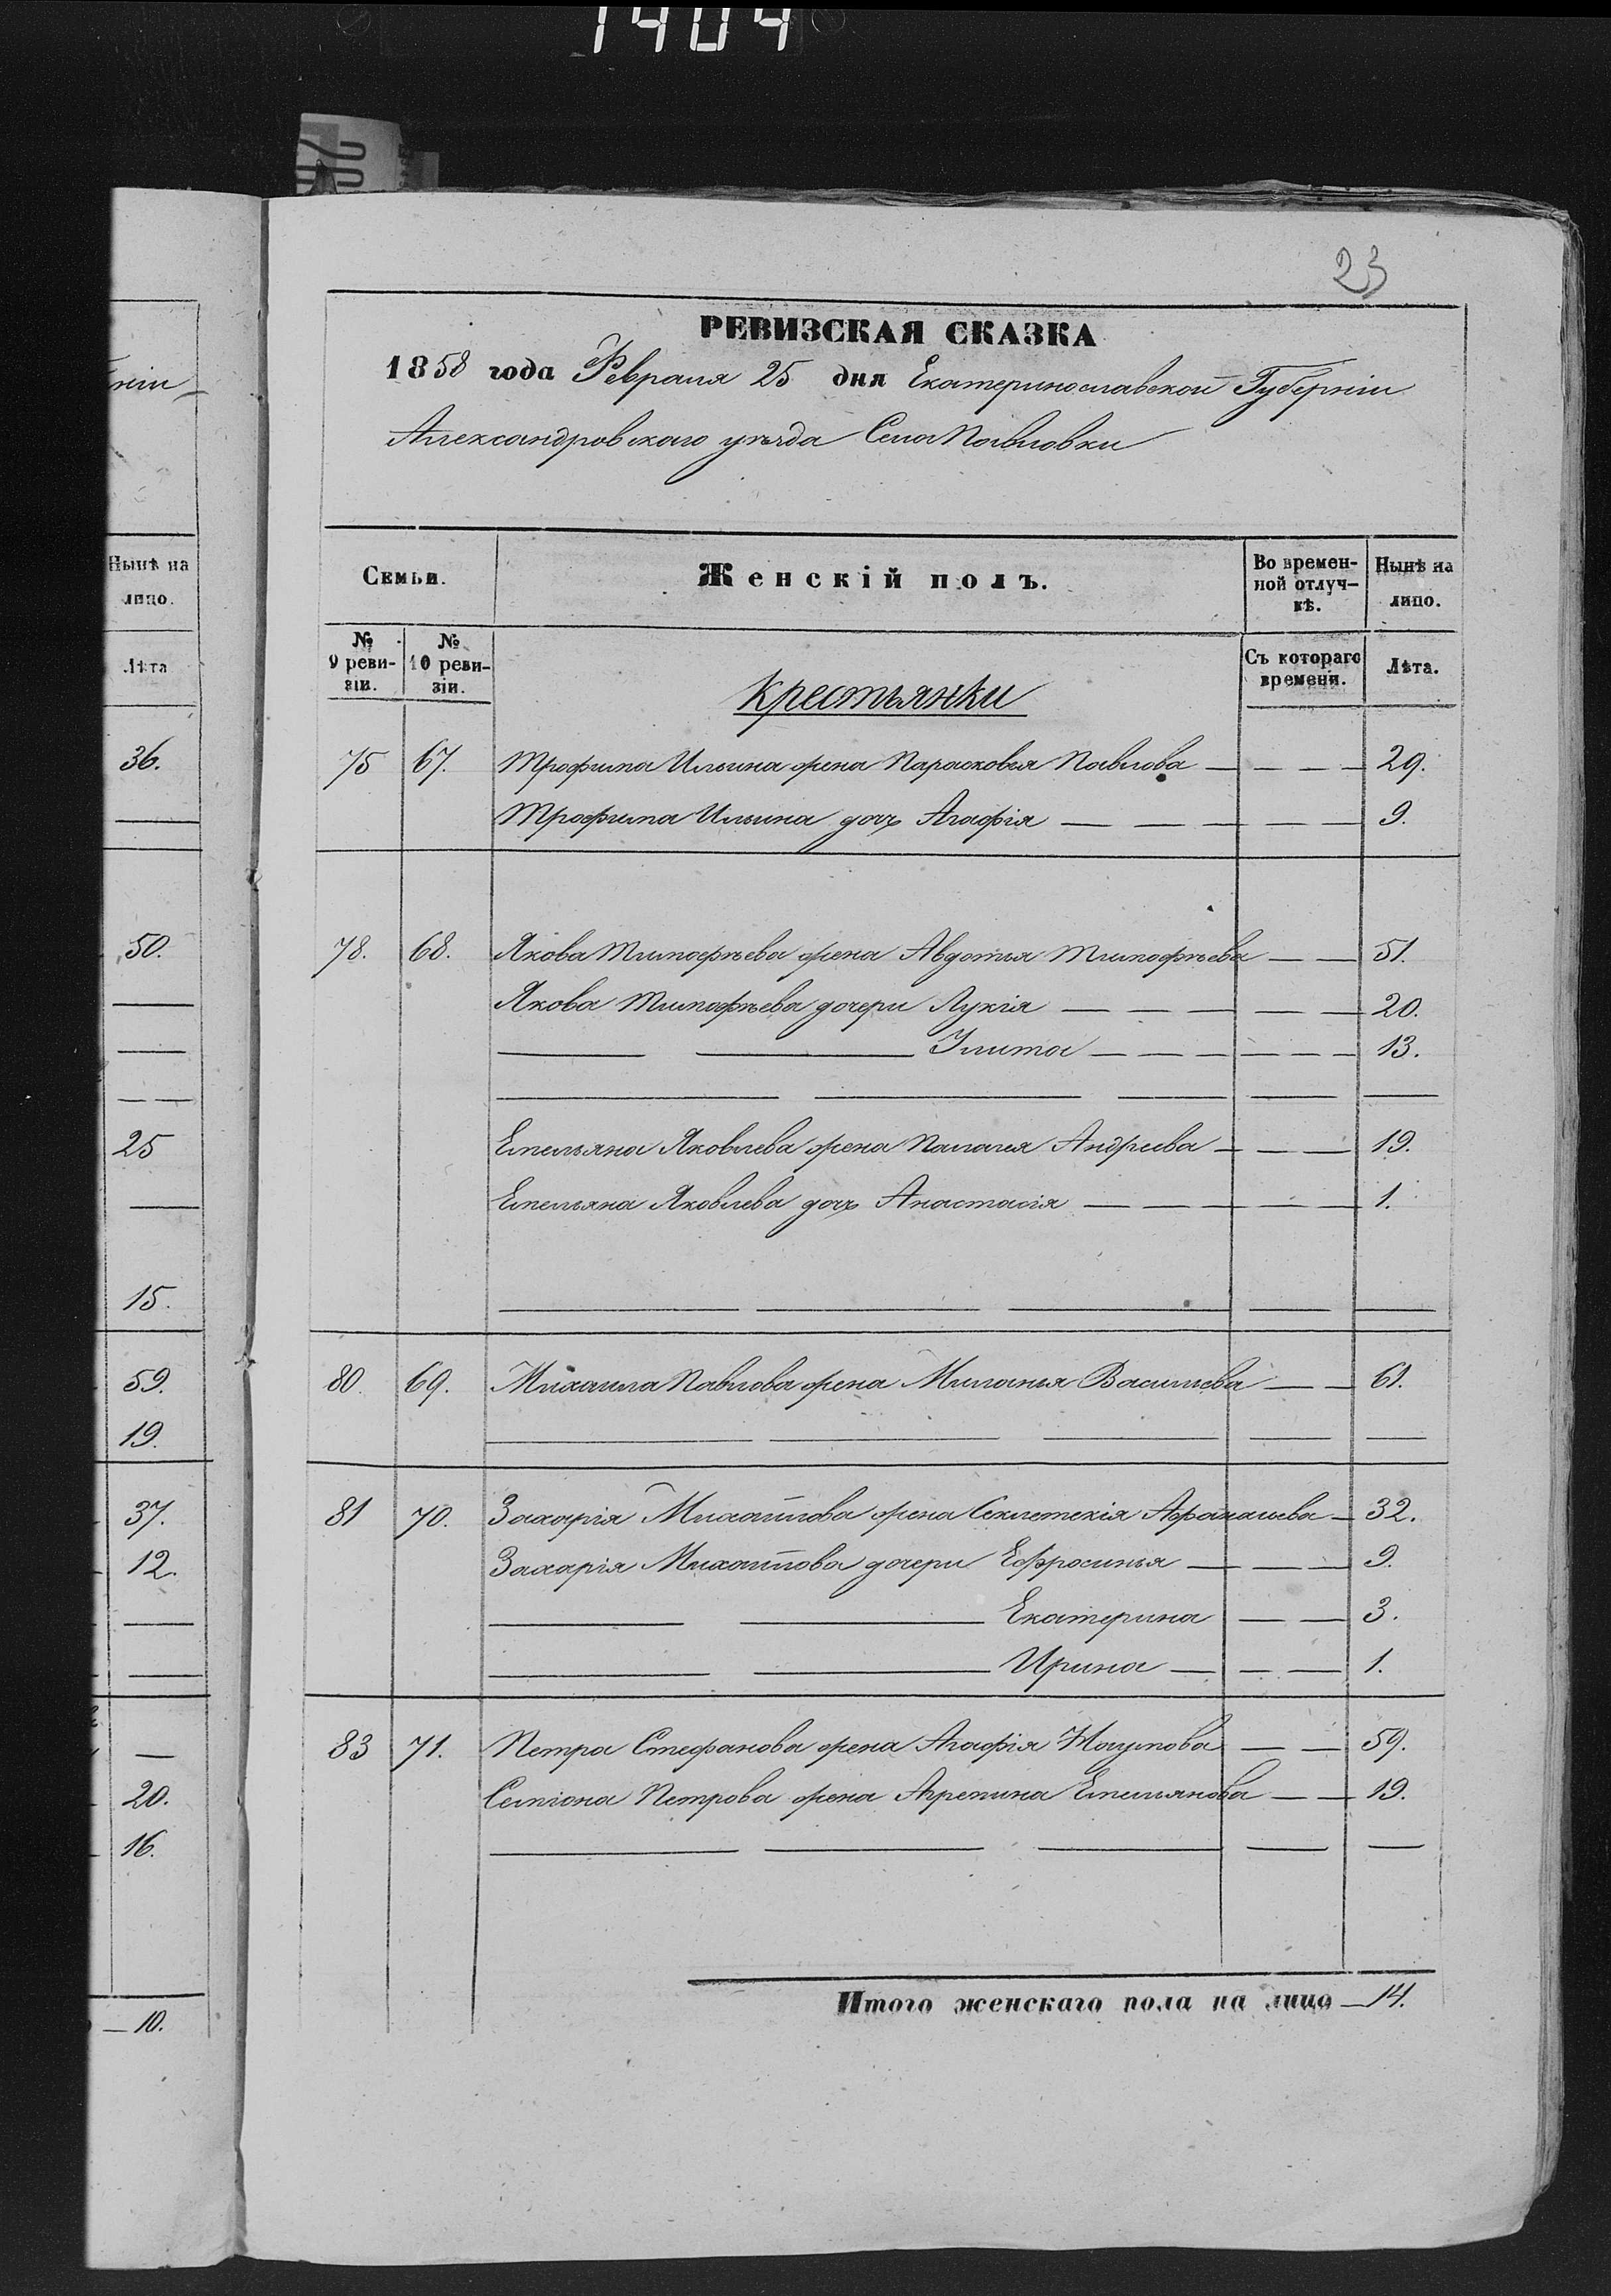 1404
23
РЕВИЗСКАЯ СКАЗКА
1858 года Февраля 25 дня Екатеринославской Губерніи
Александровскаго уѣзда Села Павловки
Семьи.
Женскій полъ.
Во времен-
ной отлуч-
кѣ.
Нынѣ на
лицо.
№
9 реви-
зіи.
№
10 реви-
зіи.
Съ котораго
времени.
Лѣта.
Крестьянки
75 67. Трофима Ильина жена Парасковья Павлова — — — 29.
Трофима Ильина дочь Агафія — — — — — 9.
78. 68. Якова Тимофѣева жена Авдотья Тимофѣева — — 51.
Якова Тимофѣева дочери Лукія — — — — — 20.
Улита — — — — — 13.
Емельяна Яковлева жена Палагея Андреева — — — 19.
Емельяна Яковлева дочь Анастасія — — — — — 1.
80. 69. Михаила Павлова жена Миланья Васильева — — 61.
81 70. Захарія Михайлова жена Секлетекія Афанасьева — 32.
Захарія Михайлова дочери Ефросинья — — — 9.
Екатерина — — 3.
Ирина — — — 1.
83 71. Петра Стефанова жена Агафія Наумова — — 59.
Семіона Петрова жена Агрепина Емельянова — — 19.
Итого женскаго пола на лицо — 14.
ніи
Нынѣ на
лицо.
Лѣта
36.
50.
25
15.
59.
19.
37.
12.
20.
16.
— 10.